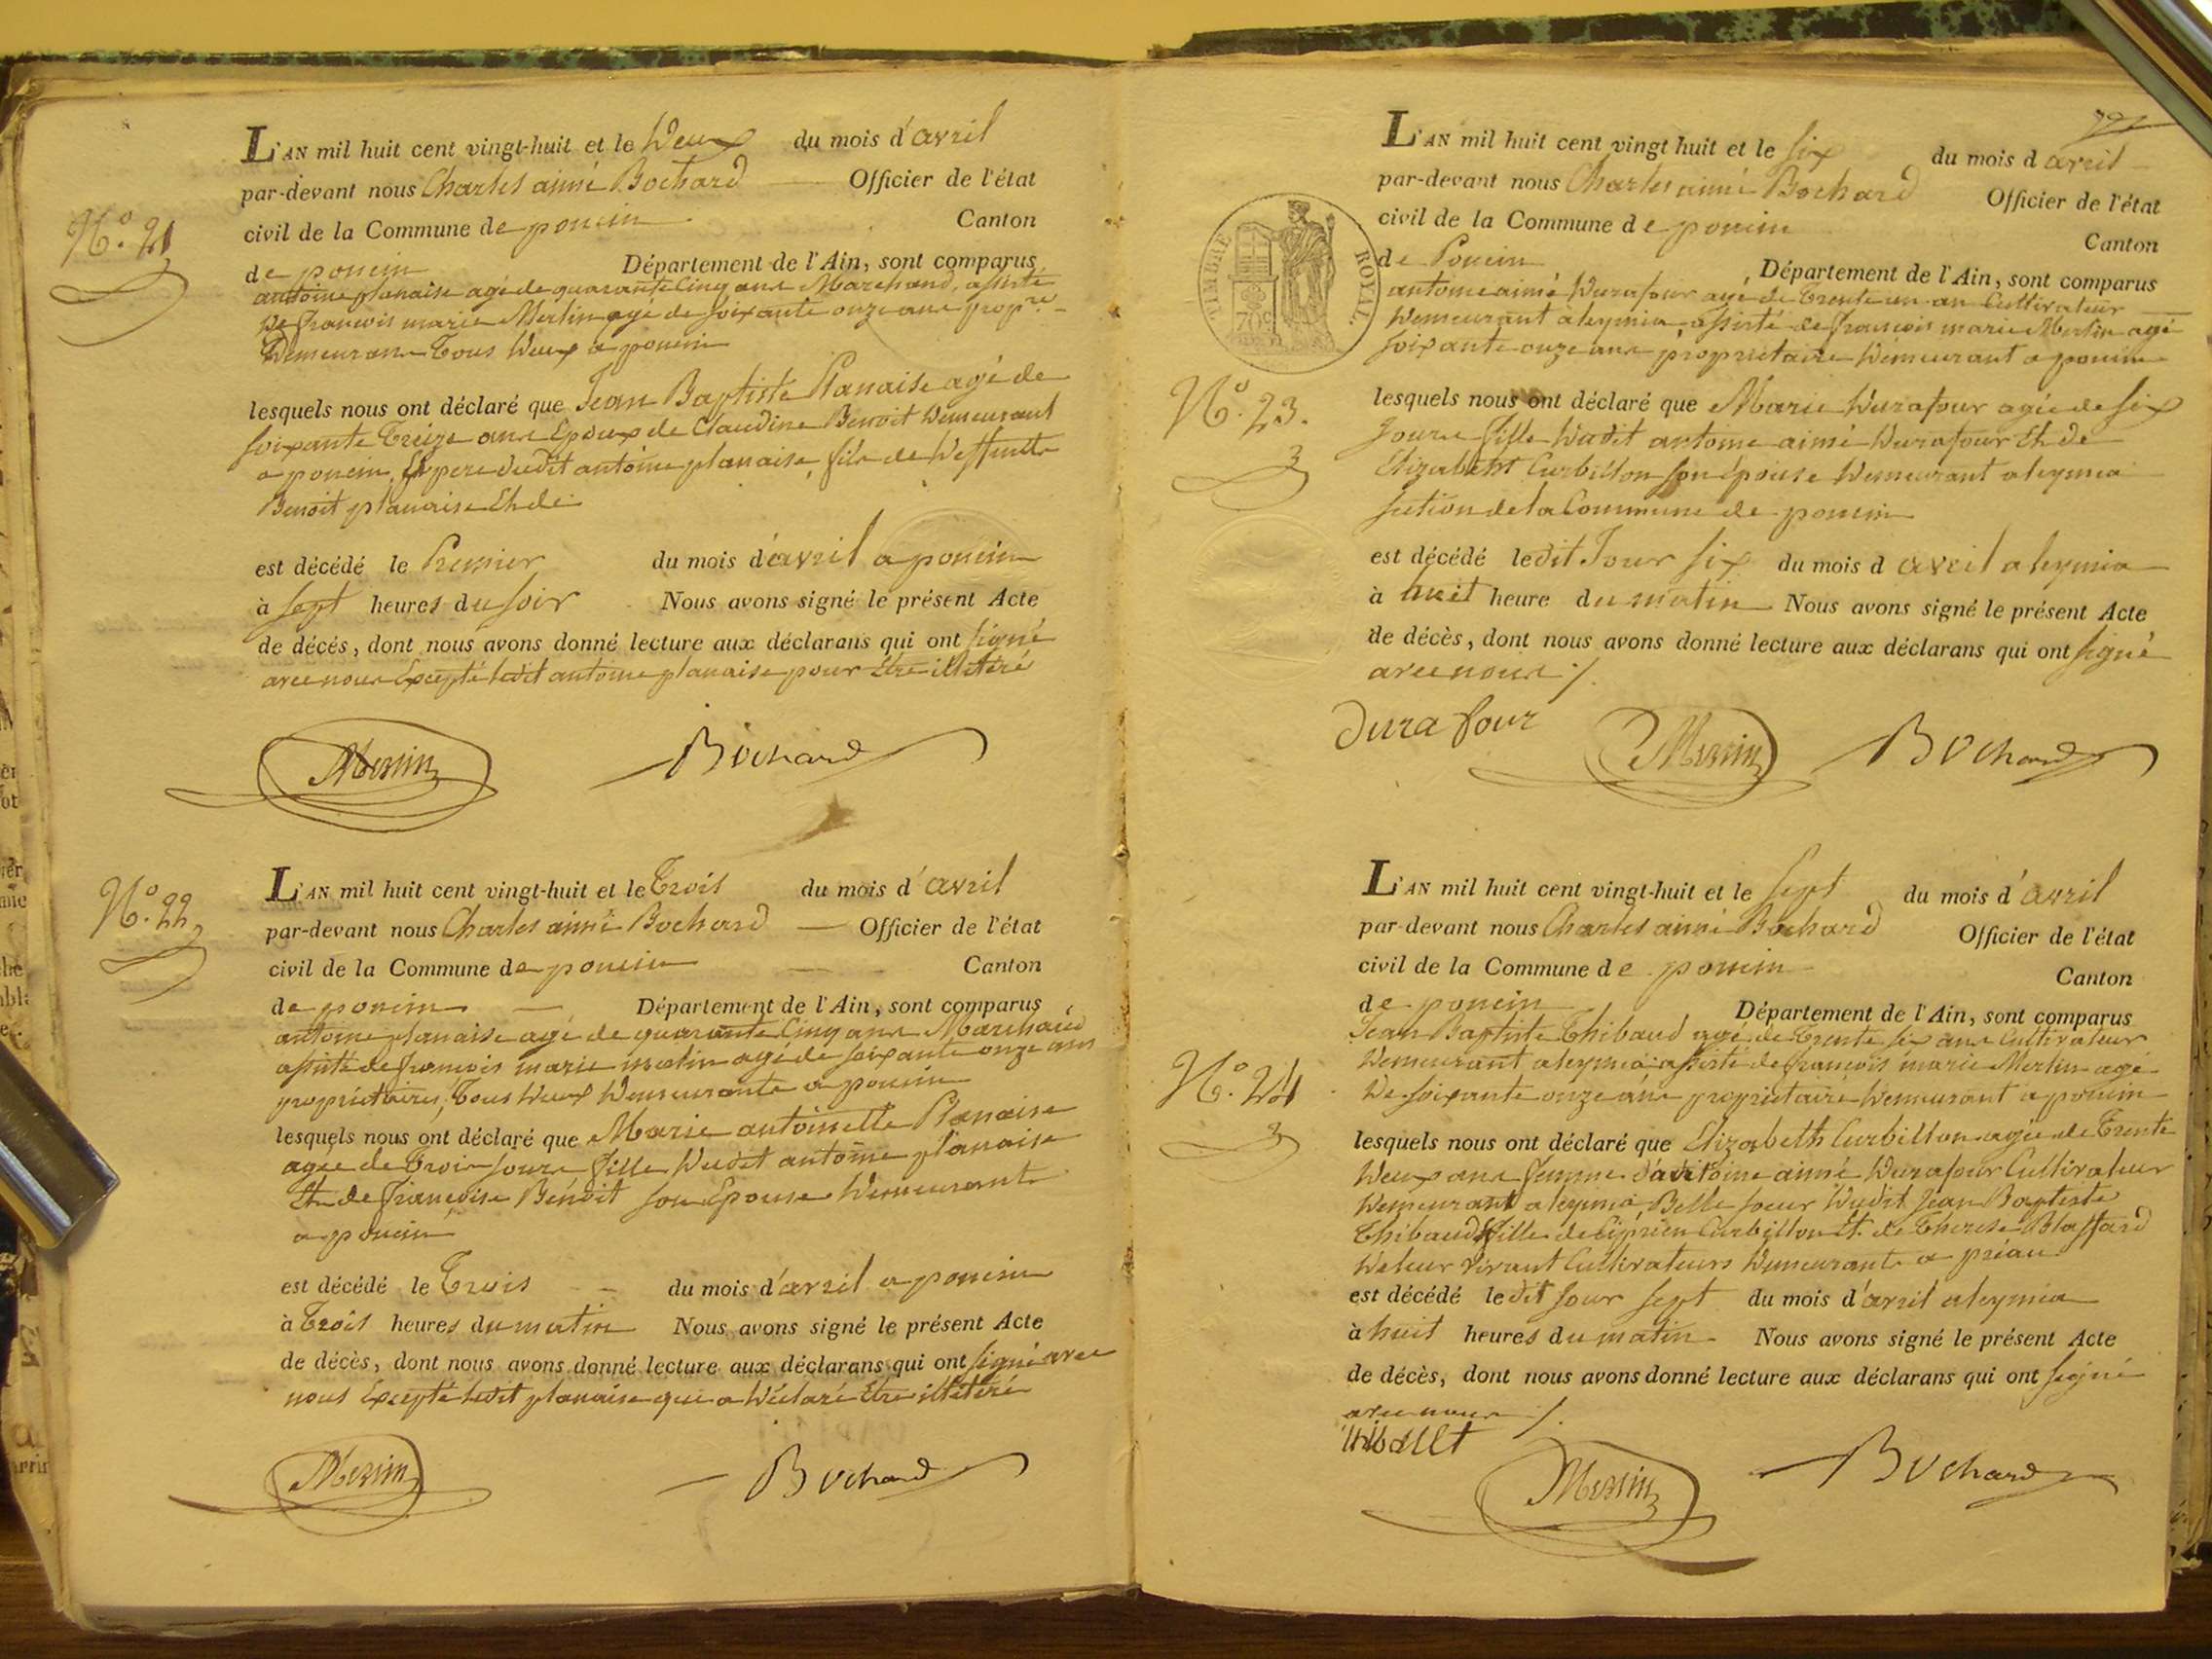 N.° 21
L'AN mil huit cent vingt-huit et le Deux du mois d'avril
par-devant nous Charles aimé Bochard Officier de l'état
civil de la Commune de poncin Canton
de poncin Département de l'Ain, sont comparus
antoine planaise agé de quarante Cinq ans Marchand, assisté
De francois marie Merlin agé de soixante onze ans prop.re
Demeurans Tous Deux a poncin
lesquels nous ont déclaré que Jean Baptiste Planaise agé de
soixante Treize ans Epoux de Claudine Benoit Demeurant
a poncin, Et pere dudit antoine planaise, fils de Deffunts
Benoit planaise Et de
est décédé le Premier du mois d'avril a poncin
à sept heures du soir Nous avons signé le présent Acte
de décés, dont nous avons donné lecture aux déclarans qui ont signé
avec nous Excepté ledit antoine planaise pour Etre illitéré
Merlin Bochard
N.° 22
L'AN mil huit cent vingt-huit et le Trois du mois d'avril
par-devant nous Charles aimé Bochard Officier de l'état
civil de la Commune de poncin Canton
de poncin Département de l'Ain, sont comparus
antoine planaise agé de quarante Cinq ans Marchand
assisté de francois marie merlin agé de soixante onze ans
propriétaires, Tous Deux Demeurants a poncin
lesquels nous ont déclaré que Marie antoinette Planaise
agée de Trois Jours fille Dudit antoine planaise
Et de françoise Bénoit son Epouse Demeurants
a poncin
est décédé le Trois du mois d'avril a poncin
à Trois heures du matin Nous avons signé le présent Acte
de décès, dont nous avons donné lecture aux déclarans qui ont signé avec
nous Excepté ledit planaise qui a Déclaré Etre illitéré
Merlin Bochard
TIMBRE ROYAL.
70c
N.° 23.
L'AN mil huit cent vingt huit et le six du mois d avril
par-devant nous Charles aimé Bochard Officier de l'état
civil de la Commune de poncin Canton
de Poncin Département de l'Ain, sont comparus
antoine aimé Durafour agé de Trente un an Cultivateur
Demeurant a leymia, assisté de francois marie Merlin agé
soixante onze ans propriétaire Demeurant a poncin
lesquels nous ont déclaré que Marie Durafour agée de six
Jours fille Dudit antoine aimé Durafour Et de
Elizabeht Curbillon son Epouse Demeurant a leymia
section de la Commune de poncin
est décédé ledit Jour six du mois d avril a leymia
à huit heure du matin Nous avons signé le présent Acte
de décès, dont nous avons donné lecture aux déclarans qui ont signé
avec nous /.
Durafour Merlin Bochard
N.° 24
L'AN mil huit cent vingt-huit et le sept du mois d'avril
par-devant nous Charles aimé Bochard Officier de l'état
civil de la Commune de poncin Canton
de poncin Département de l'Ain, sont comparus
Jean Baptiste Thibaud agé de Trente six ans Cultivateur
Demeurant a leymia assisté de francois marie Merlin agé
De soixante onze ans propriétaire Demeurant a poncin
lesquels nous ont déclaré que Elizabeth Curbillon agée de Trente
Deux ans femme d'antoine aimé Durafour Cultivateur
Demeurant a leymia Belle soeur Dudit Jean Baptiste
Thibaud fille de Ciprien Curbillon Et de Therese Blaffard
De leur vivant Cultivateurs Demeurants a priau
est décédé ledit Jour sept du mois d'avril a leymia
à huit heures du matin Nous avons signé le présent Acte
de décès, dont nous avons donné lecture aux déclarans qui ont signé
avec nous /.
thibault Merlin Bochard